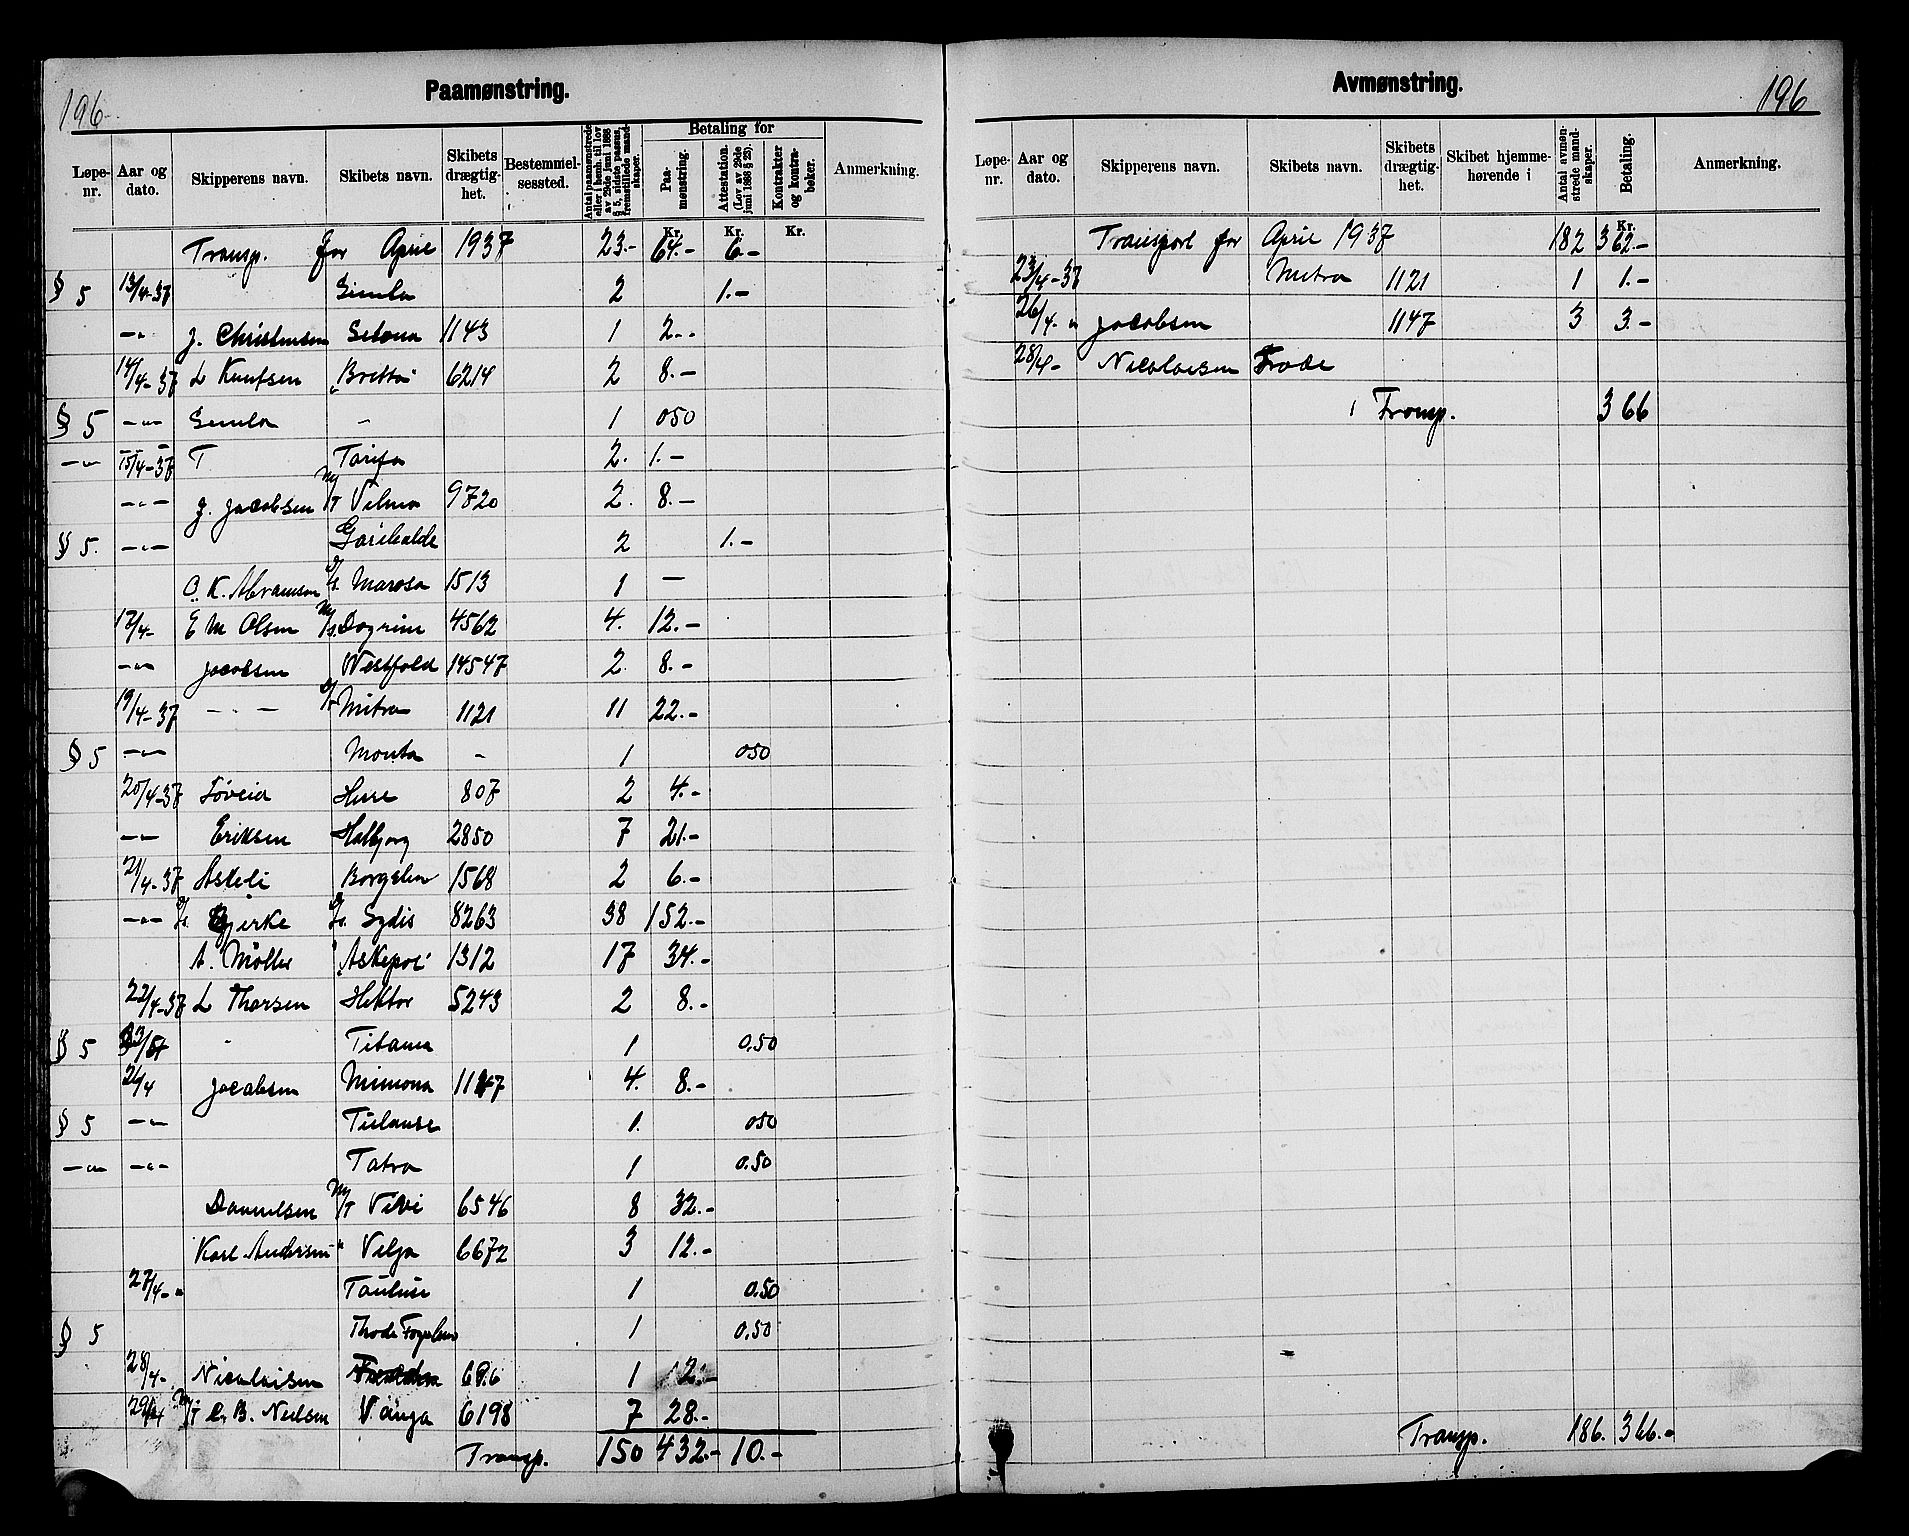 196
Paamønstring.
Løpe-nr. Aar og dato. Skipperens navn. Skibets navn. Skibets drægtighet. Bestemmelsessted. Antal paamønstrede eller i henh. til lov av 29de juni 1888 § 5, sidste passus, fremstillede mandskaper. Betaling for Paamønstring. Attestation. (Lov av 29de juni 1888 § 23). Kontrakter og kontrabøker. Anmerkning.
Kr. Kr. Kr.
Transp. for April 1937 23.- 64.- 6.-
§ 5 13/4-37 Simla 2 1.-
-"- J. Christensen Selona 1143 1 2.-
14/4-37 L Knutsen "Bretta" 6214 2 8.-
§ 5 -"- Simla - 1 050
-"- 15/4-37 T Tarifa 2. 1.-
-"- J. Jacobsen M/T Vilma 9720 2. 8.-
§ 5. -"- Garibalde 2 1.-
O. K. Abramsen D/s. Marosa 1513 1 -
17/4- E M Olsen M/s. Dagrun 4562 4. 12.-
-"- Jacobsen Vestfold 14547 2. 8.-
19/4-37 - " - Mitra 1121 11 22.-
§ 5 -"- Monta - 1 050
20/4-37 Løveid Hisse 807 2 4.-
-"- Eriksen Halbjorg 2850 7 21.-
21/4-37 Askeli Borgshin 1568 2 6.-
-"- Bjerke D/s. Sydis 8263 38 152.-
A. Møller "Askepot" 1312 17 34.-
22/4-37 L Thorsen Hektor 5243 2 8.-
§ 5 23/4 " Titania 1 0.50
26/4 Jacobsen Mimona 1147 4. 8.-
§ 5 -"- 1. 050
-"- -"- Tatra 1 0.50
Danielsen M/T Vivi 6546 8 32.-
Karl Andersen " Vilja 6672 3 12.-
27/4-" Toulouse 1 0.50
§ 5 Thode Fagelund 1 0.50
28/4- Nicolaisen 686 1 2.-
29/4 M/T C. B. Nielsen Vanja 6198 7 28.-
Transp. 150 432.- 10.-
196
Avmønstring.
Løpe-nr. Aar og dato. Skipperens navn. Skibets navn. Skibets drægtighet. Skibet hjemmehørende i Antal avmønstrede mandskaper. Betaling. Anmerkning.
Kr.
Transport for April 1937 182 362.-
23/4-37 Mitra 1121 1 1.-
26/4-" Jacobsen 1147 3 3.-
28/4- Nicolaisen Frode
Transp. 366
Transp. 186. 366.-